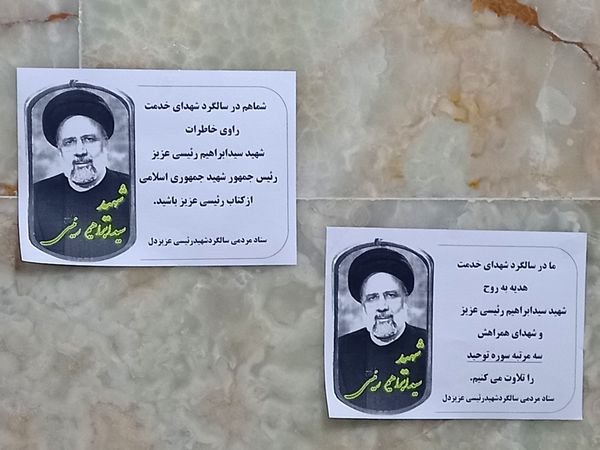 شماهم در سالگرد شهدای خدمت
راوی خاطرات
شهید سیدابراهیم رئیسی عزیز
رئیس جمهور شهید جمهوری اسلامی
ازکتاب رئیسی عزیز باشید.
ستاد مردمی سالگردشهیدرئیسی عزیزدل
شهید
سیدابراهیم رئیسی
ما در سالگرد شهدای خدمت
هدیه به روح
شهید سیدابراهیم رئیسی عزیز
و شهدای همراهش
سه مرتبه سوره توحید
را تلاوت می کنیم.
ستاد مردمی سالگردشهیدرئیسی عزیزدل
شهید
سیدابراهیم رئیسی